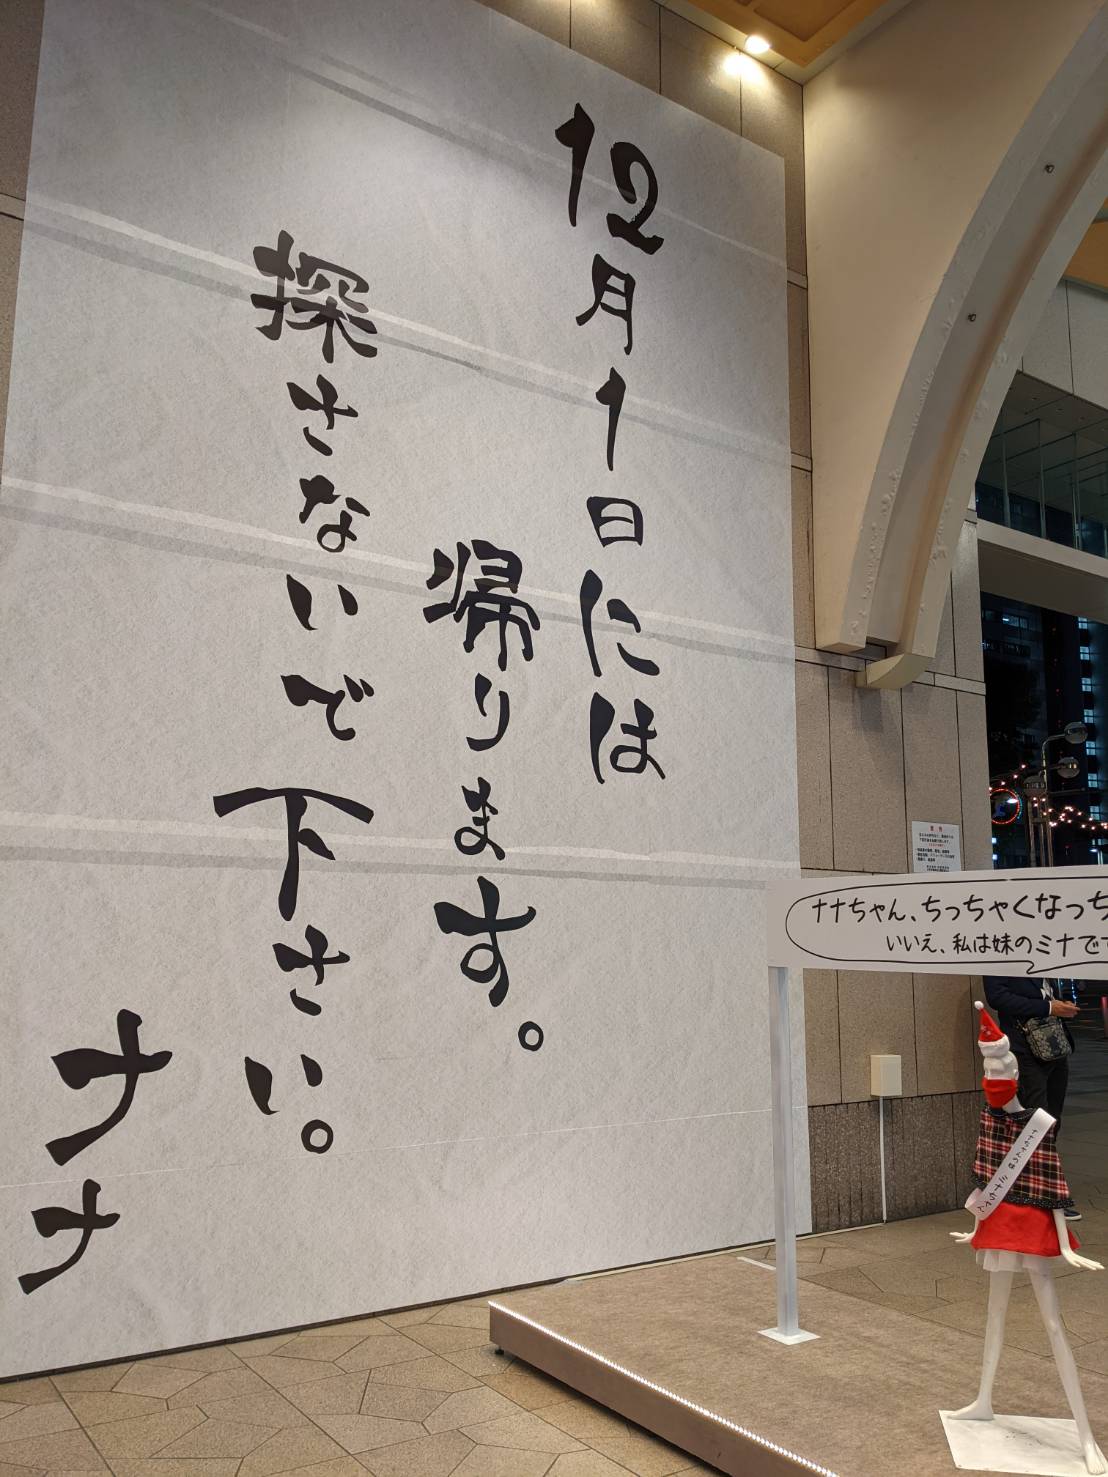 12月1日には
帰ります。
探さないで下さい。
ナナ
ナナちゃん、ちっちゃくなっち
いいえ、私は妹のミナで